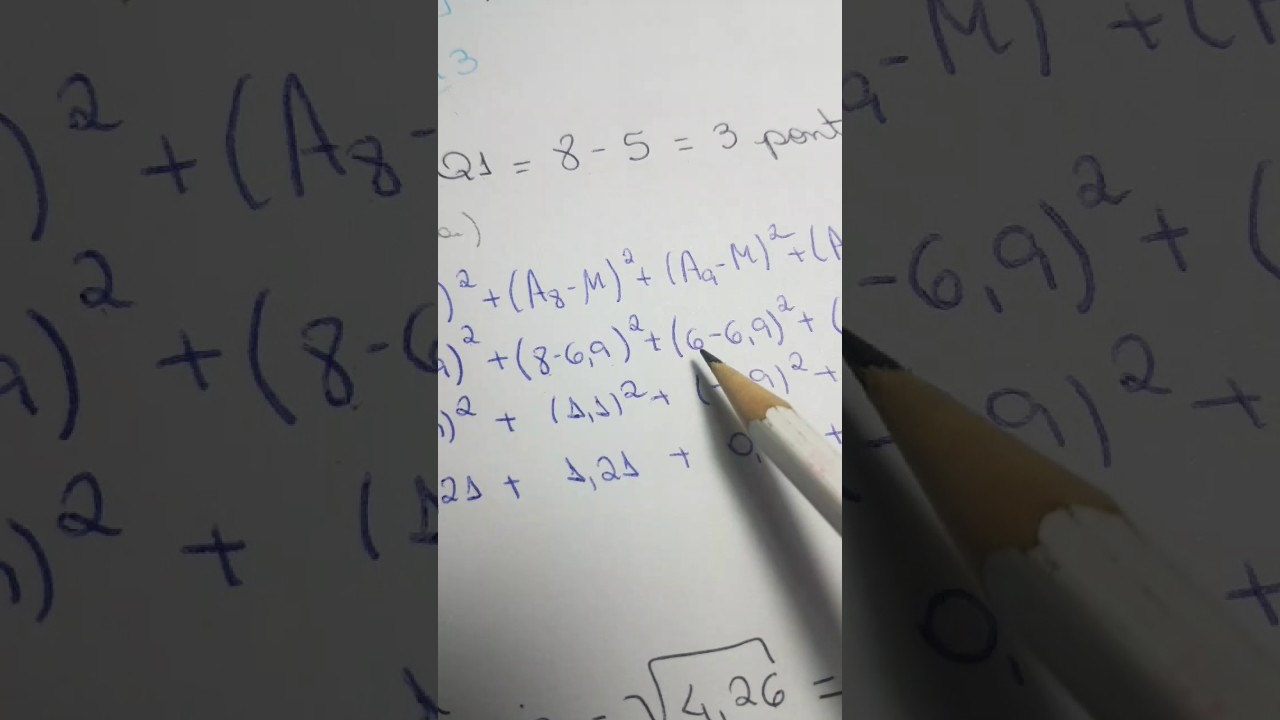 3
Q1 = 8 - 5 = 3 pont
a)
)² + (A8 - M)² + (A9 - M)² + (A
9)² + (8 - 6,9)² + (6 - 6,9)² + (
)² + (1,1)² + (- 9)² +
21 + 1,21 + 0, +
= √4,26 =